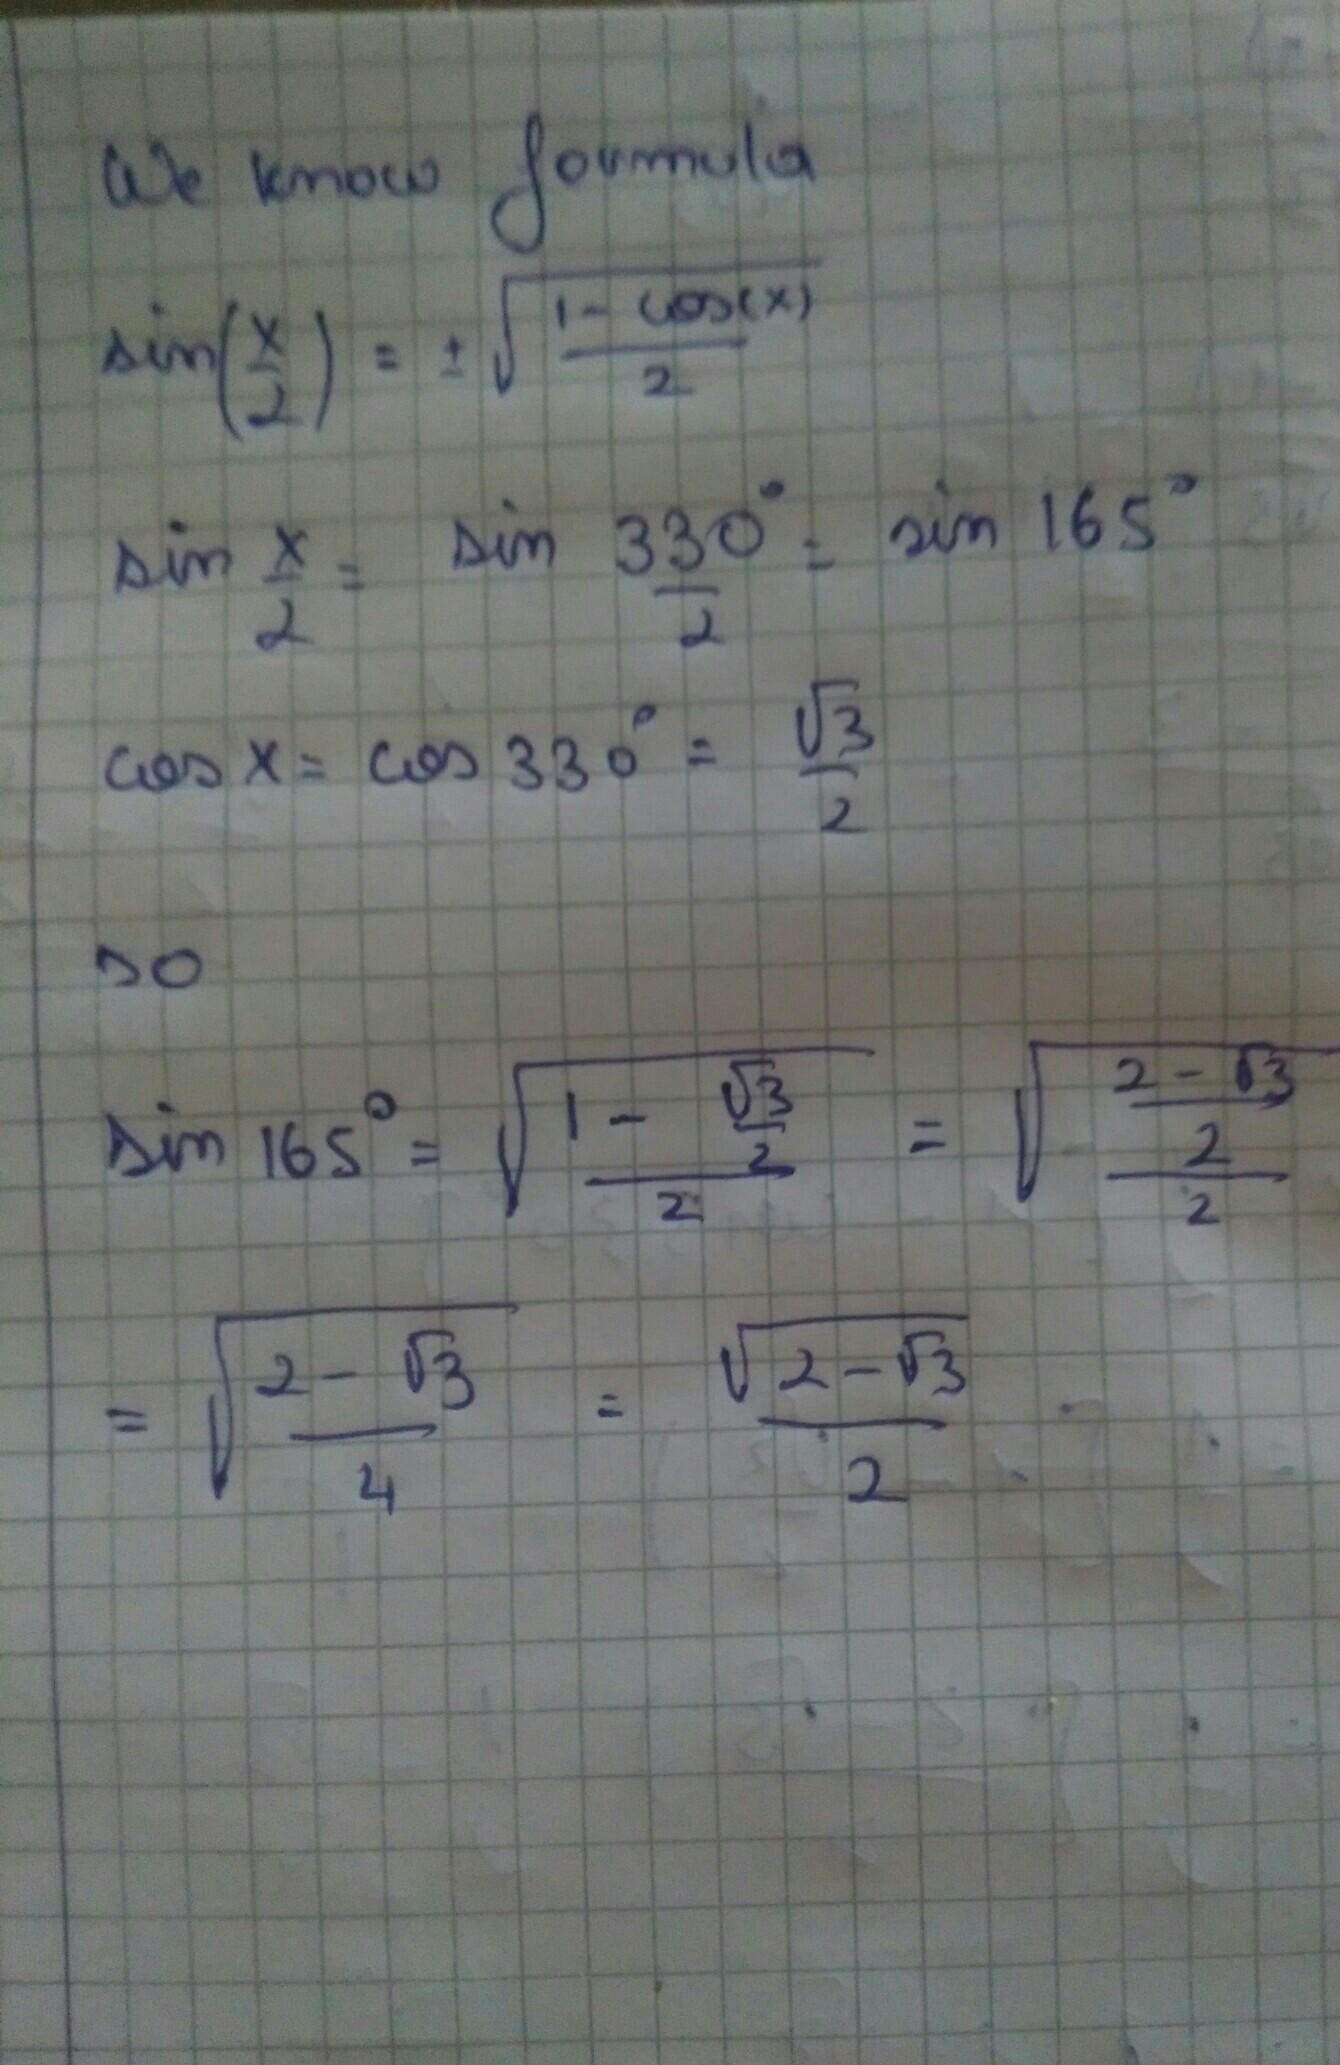 We know formula
sin(x/2) = ±√((1 - cos(x))/2)
sin x/2 = sin 330°/2 = sin 165°
cos x = cos 330° = √3/2
so
sin 165° = √((1 - √3/2)/2) = √(((2 - √3)/2)/2)
= √((2 - √3)/4) = √(2 - √3)/2